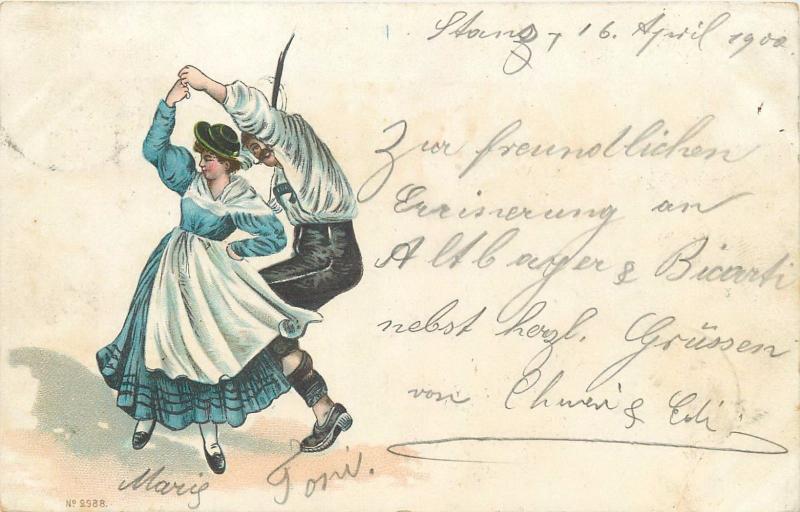 Stans, 16. April 1900.
Zur freundlichen
Erinerung an
Altbayer & Bicarti
nebst herzl. Grüssen
von & Edi.
Marie Toni.
Nº 2988.